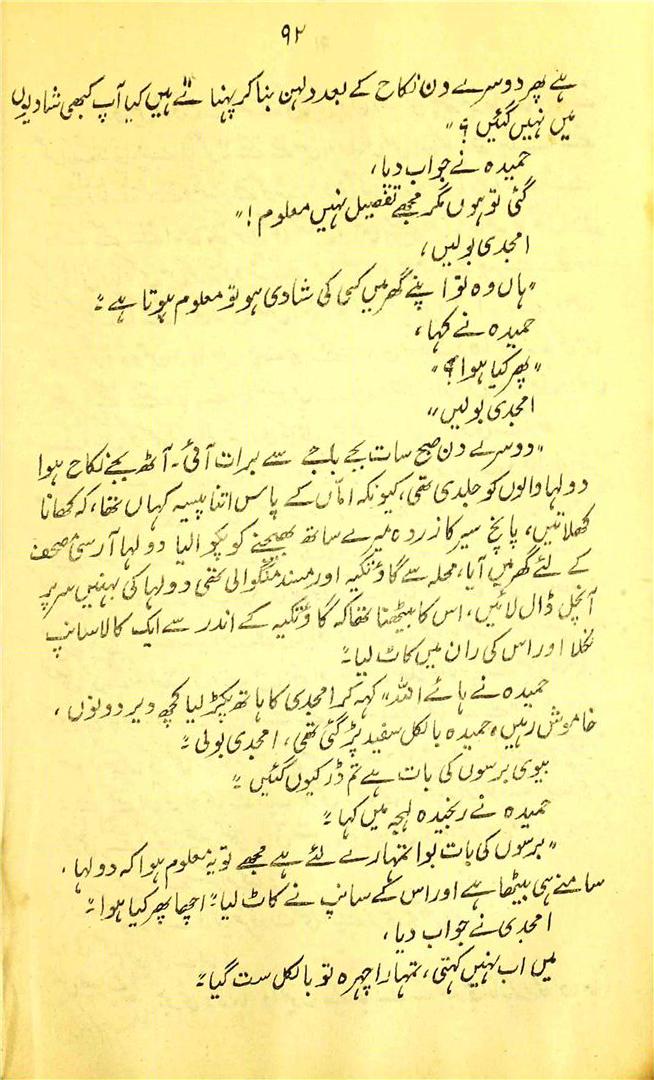 ۹۲
ہے پھر دوسرے دن نکاح کے بعد دلہن بنا کر پہنا تے ہیں کیا آپ کبھی شادیوں
میں نہیں گئیں ؟"
حمیدہ نے جواب دیا،
گئی تو ہوں مگر مجھے تفصیل نہیں معلوم !"
امجدی بولیں،
"ہاں وہ تو اپنے گھر میں کسی کی شادی ہو تو معلوم ہوتا ہے۔"
حمیدہ نے کہا،
"پھر کیا ہوا؟"
امجدی بولیں"
"دوسرے دن صبح سات بجے باجے سے برات آئی۔ آٹھ بجے نکاح ہوا
دولہا والوں کو جلدی تھی، کیونکہ اماں کے پاس اتنا پیسہ کہاں تھا، کہ کھانا
کھلاتیں، پانچ سیر کا زردہ میرے ساتھ بھیجنے کو پکوا لیا دولہا آرسی مصحف
کے لئے گھر میں آیا، محلہ سے گاؤ تکیہ اور مسند منگوالی تھی دولہا کی بہنیں سر پر
آنچل ڈال لائیں، اس کا بیٹھنا تھا کہ گاؤ تکیہ کے اندر سے ایک کالا سانپ
نکلا اور اس کی ران میں کاٹ لیا۔"
حمیدہ نے ہائے اللہ" کہہ کر امجدی کا ہاتھ پکڑ لیا کچھ دیر دونوں ،
خاموش رہیں، حمیدہ بالکل سفید پڑ گئی تھی، امجدی بولی۔"
بیوی برسوں کی بات ہے تم ڈر کیوں گئیں۔"
حمیدہ نے رنجیدہ لہجہ میں کہا۔"
"برسوں کی بات بوا تمہارے لئے ہے مجھے تو یہ معلوم ہوا کہ دولہا ،
سامنے ہی بیٹھا ہے اور اس کے سانپ نے کاٹ لیا۔" اچھا پھر کیا ہوا۔"
امجدی نے جواب دیا،
میں اب نہیں کہتی، تمہارا چہرہ تو بالکل ست گیا۔"